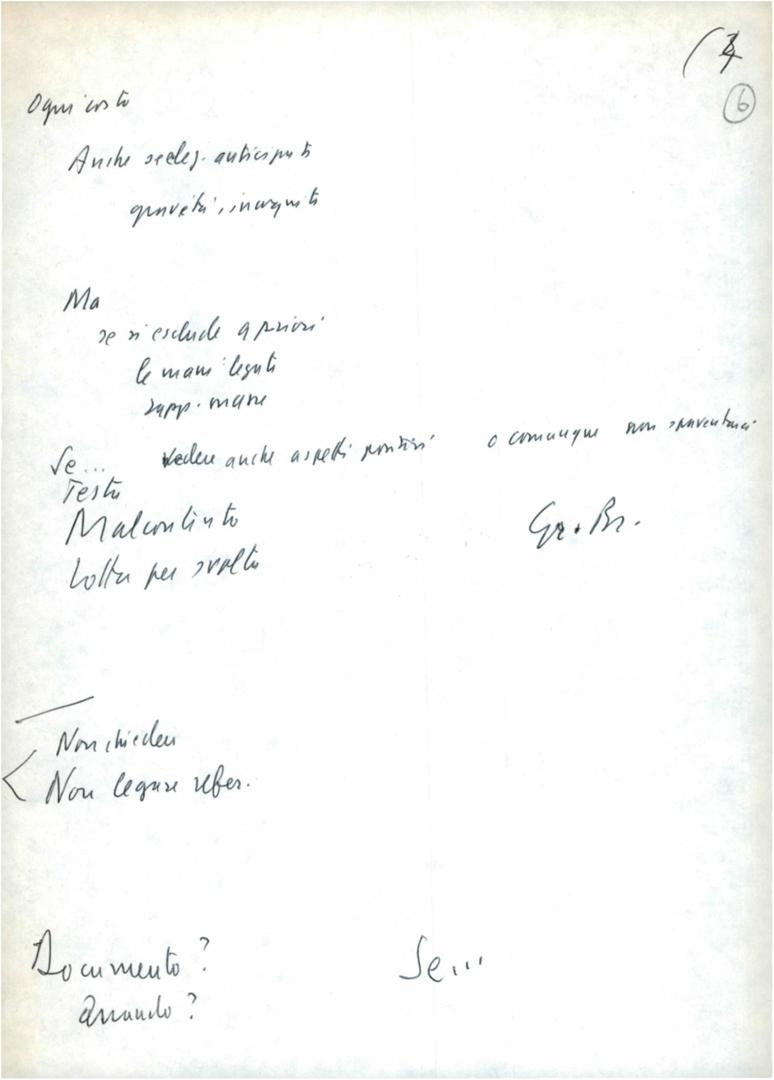 6
Ogni costo
Anche se eleg. anticipate
gravità, incognite
Ma
se si esclude a priori
le mani legate
rapp. mare
Se... Vedere anche aspetti positivi o comunque non spaventarci
Testo
Malcontento
Gr. Br.
Lotta per svolta
Non chiedere
Non legare refer.
Documento? Se...
Quando?